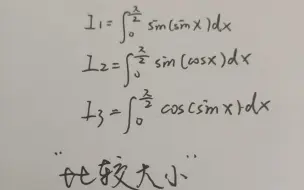 I₁=∫₀^{π/2} sin(sinx)dx
I₂=∫₀^{π/2} sin(cosx)dx
I₃=∫₀^{π/2} cos(sinx)dx
"比较大小"